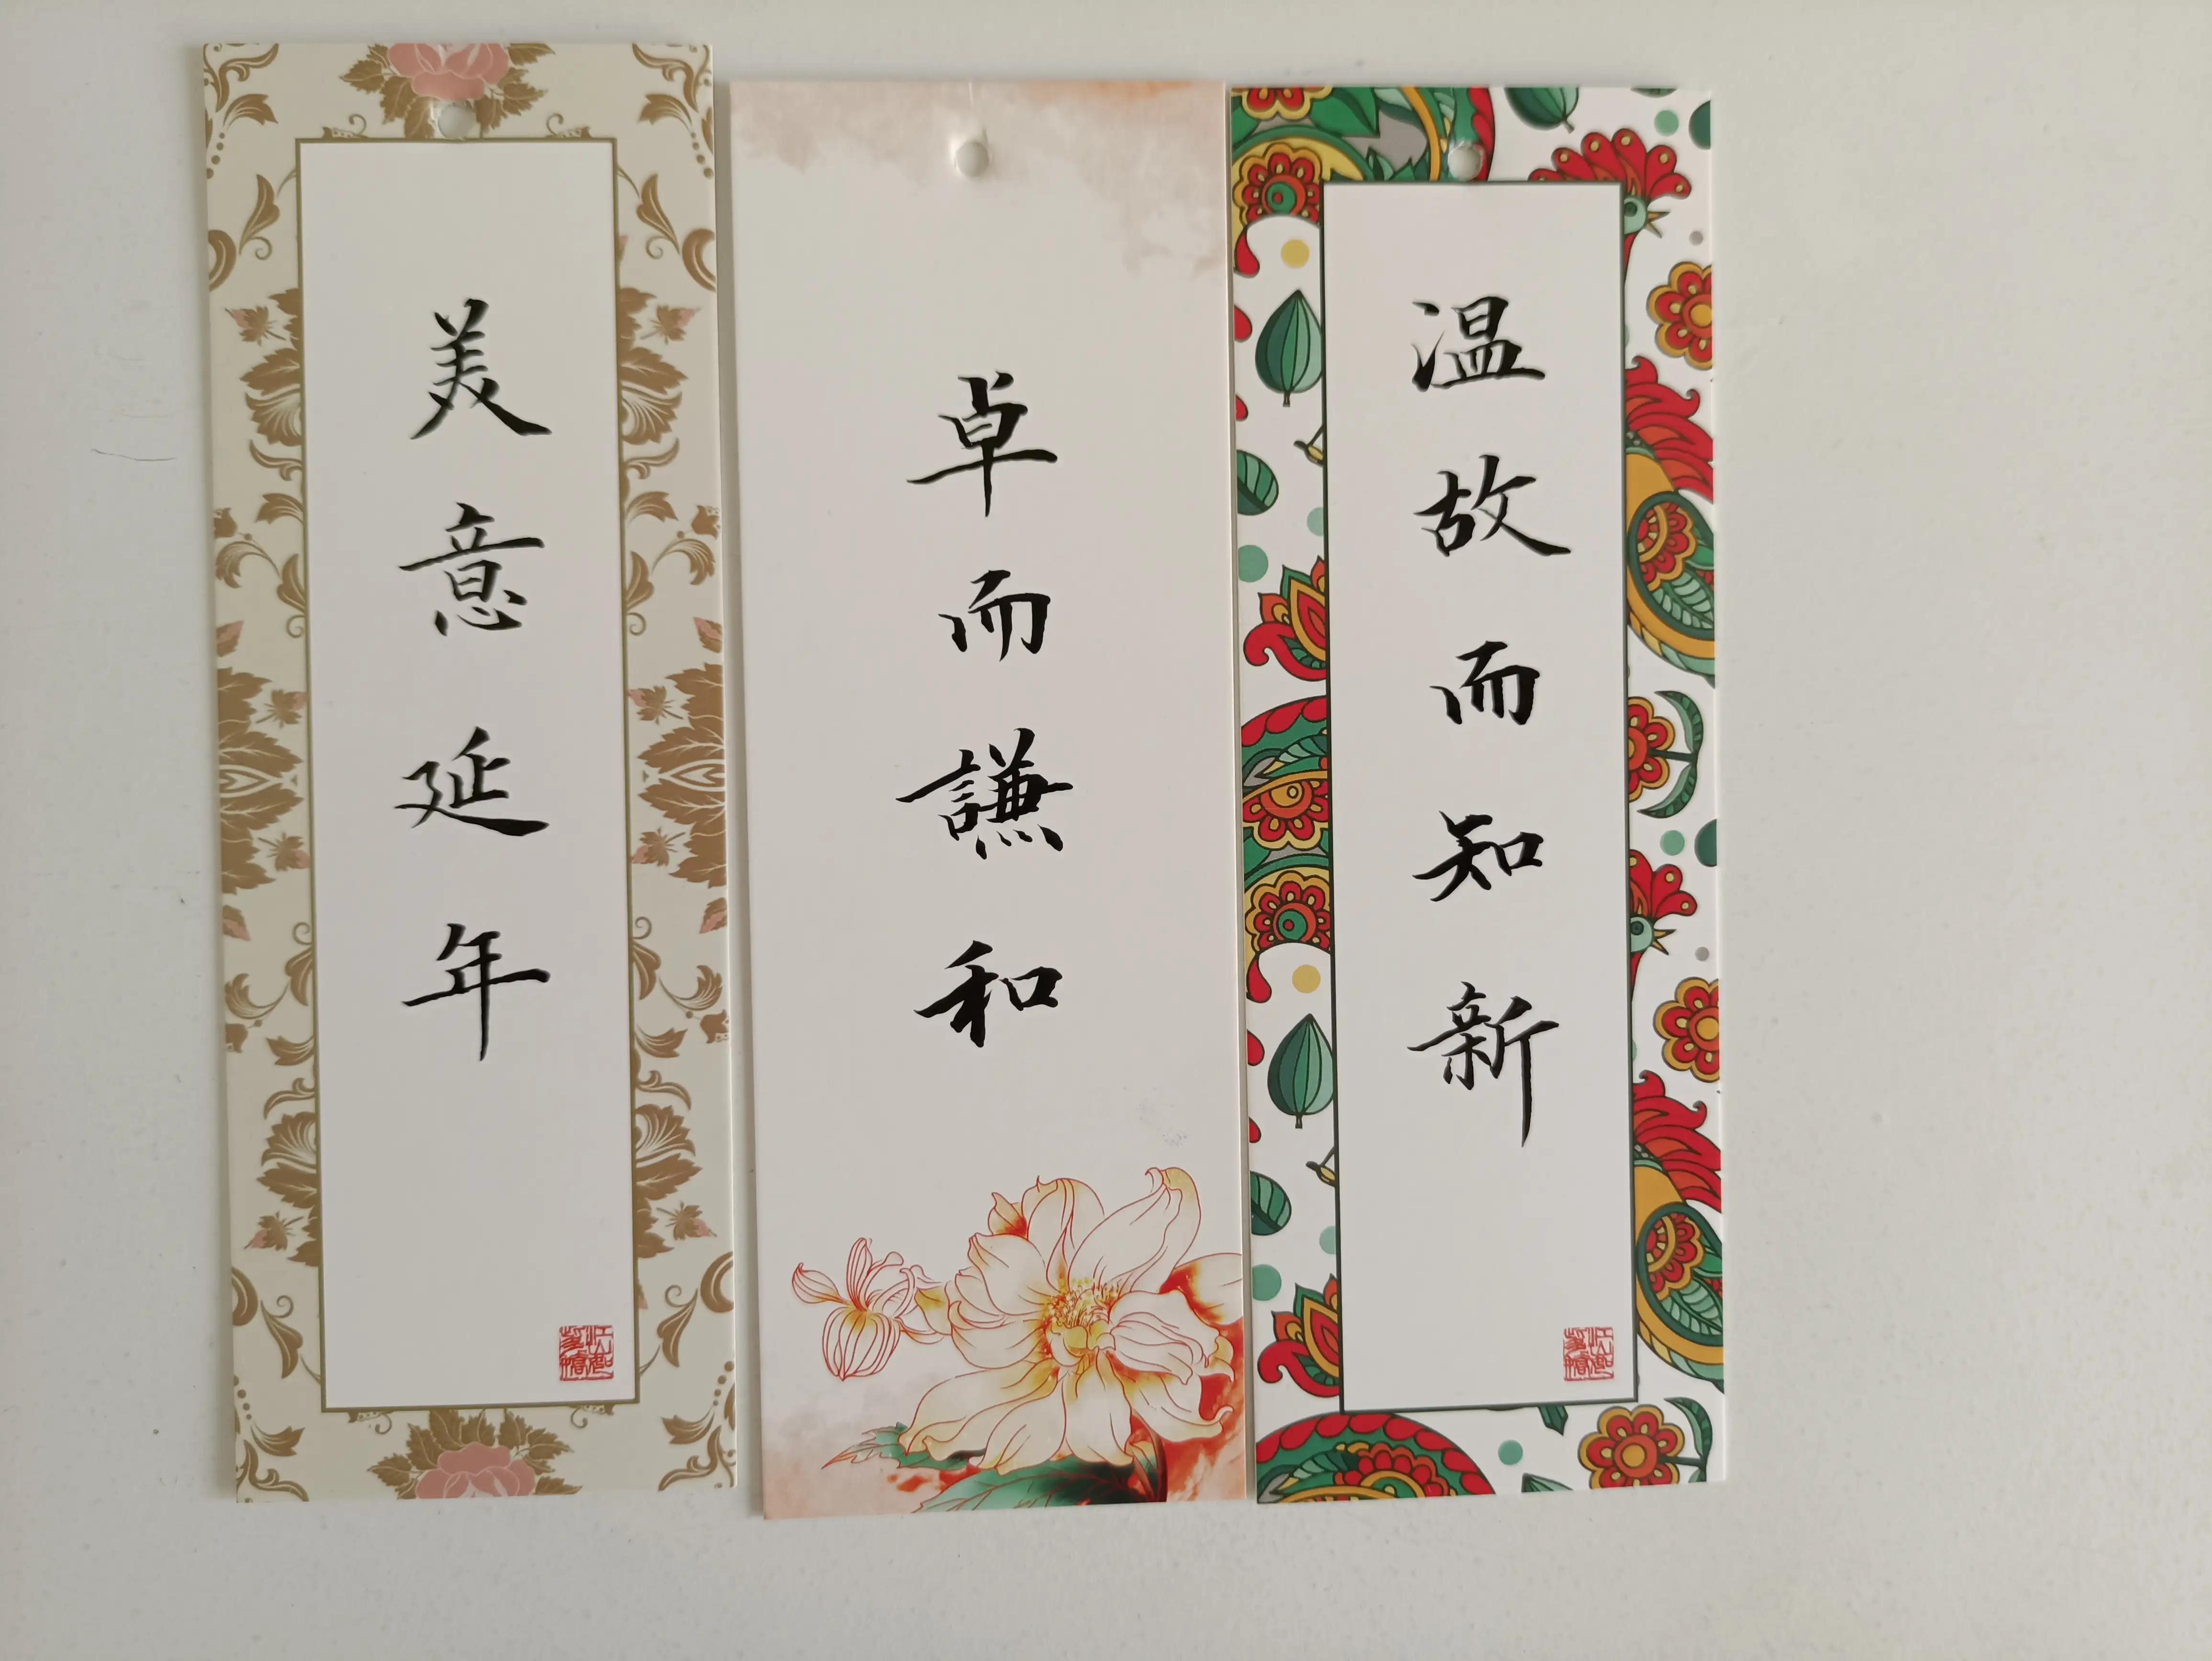 美意延年
卓而謙和
温故而知新